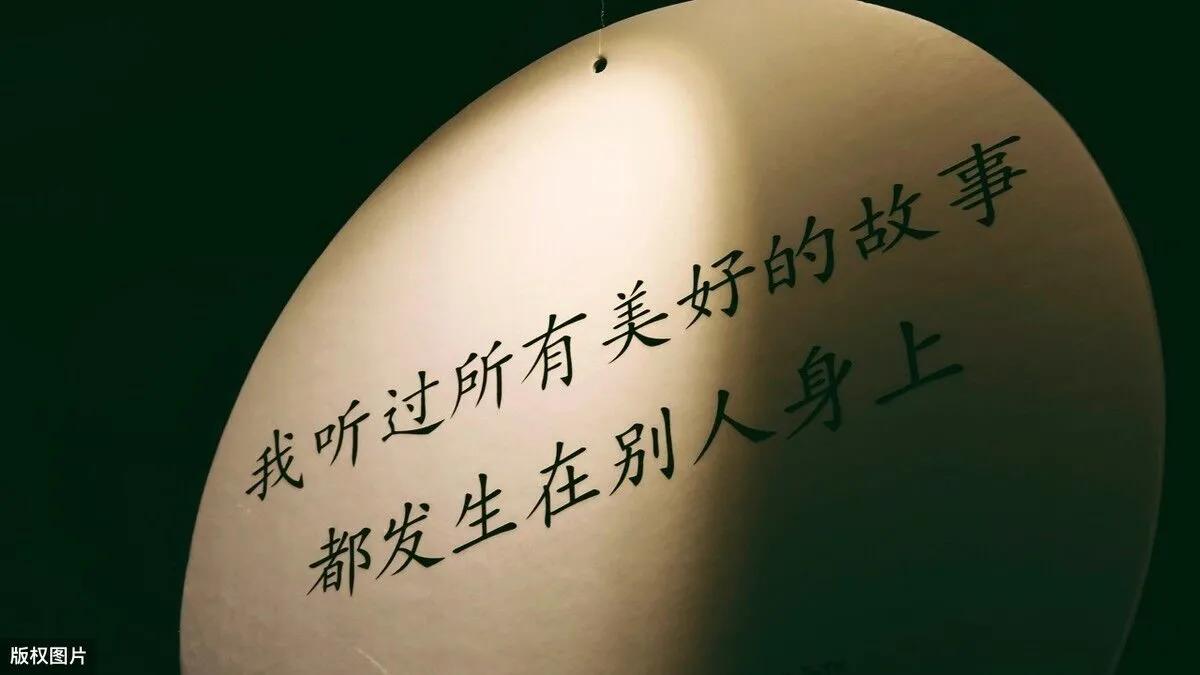 我听过所有美好的故事
都发生在别人身上
版权图片